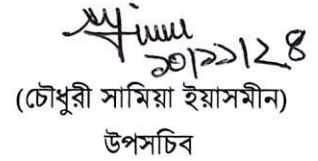 ২০/১১/২৪
(চৌধুরী সামিয়া ইয়াসমীন)
উপসচিব